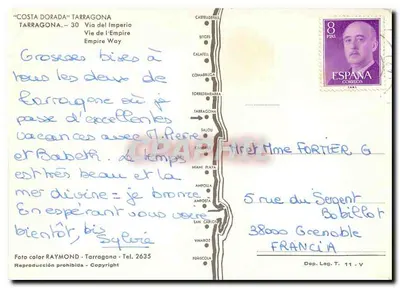 "COSTA DORADA" TARRAGONA
TARRAGONA. - 30 Via del Imperio
Vie de l'Empire
Empire Way
Grosses bises à
tous les deux de
Tarragone où je
passe d'excellentes
vacances avec J. Pierre
et Babeth. Le temps
est très beau et la
mer divine = je bronze
En espérant vous voir
bientôt, bis
Sylvie
Foto color RAYMOND - Tarragona - Tel. 2635
Reproducción prohibida - Copyright
CASTELLDEFELS
SITGES
CALAFELL
COMARRUGA
TORREDEMBARRA
TARRAGONA
SALOU
MIAMI PLAYA
AMPOLLA
AMPOSTA
SAN CARLOS
VINAROZ
PEÑISCOLA
8
PTAS
ESPAÑA
CORREOS
Mr et Mme FORTIER G
5 rue du Sergent
Bobillot
38000 Grenoble
FRANCIA
Dep. Leg. T. 11 - V